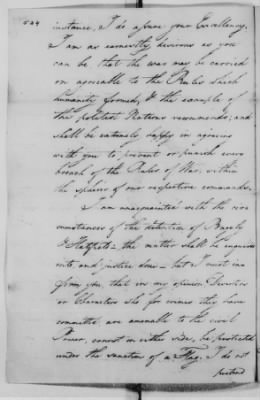 524
instance, I do assure your Excellency,
I am as earnestly desirous as you
can be that the war may be carried
on agreeable to the Rules which
humanity formed, & the example of
the politest Nations recommends; and
shall be extremely happy in agreeing
with you to prevent or punish every
breach of the Rules of War, within
the spheres of our respective commands.
I am unacquainted with the circ
umstances of the detention of Bragely
& Hatfield— the matter shall be inquired
into, and justice done — but I must in
form you, that in my opinion Deserters
or Characters who for crimes they have
committed, are amenable to the civil
Power, cannot on either side, be protected
under the sanction of a Flag. I do not
pretend